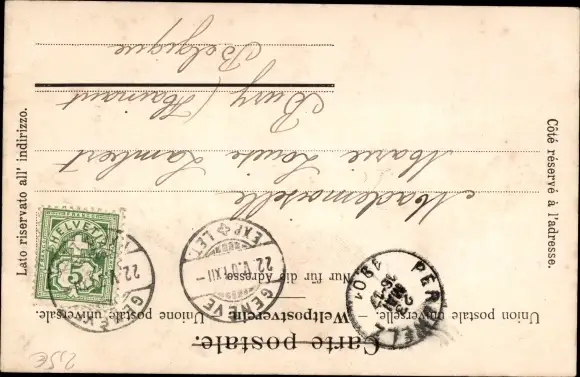 Carte postale.
Union postale universelle. — Weltpostverein — Unione postale universale.
Nur für die Adresse.
Côté réservé à l'adresse.
Lato riservato all' indirizzo.
HELVETIA
FRANCO
5
GENÈVE
22.V.01.XII–
EXP. LET.
GENÈVE
22.V
PERUWELZ
23
MAI
1901
Mademoiselle
Marie Louise Lambert
Bury (Hainaut
Belgique
25€